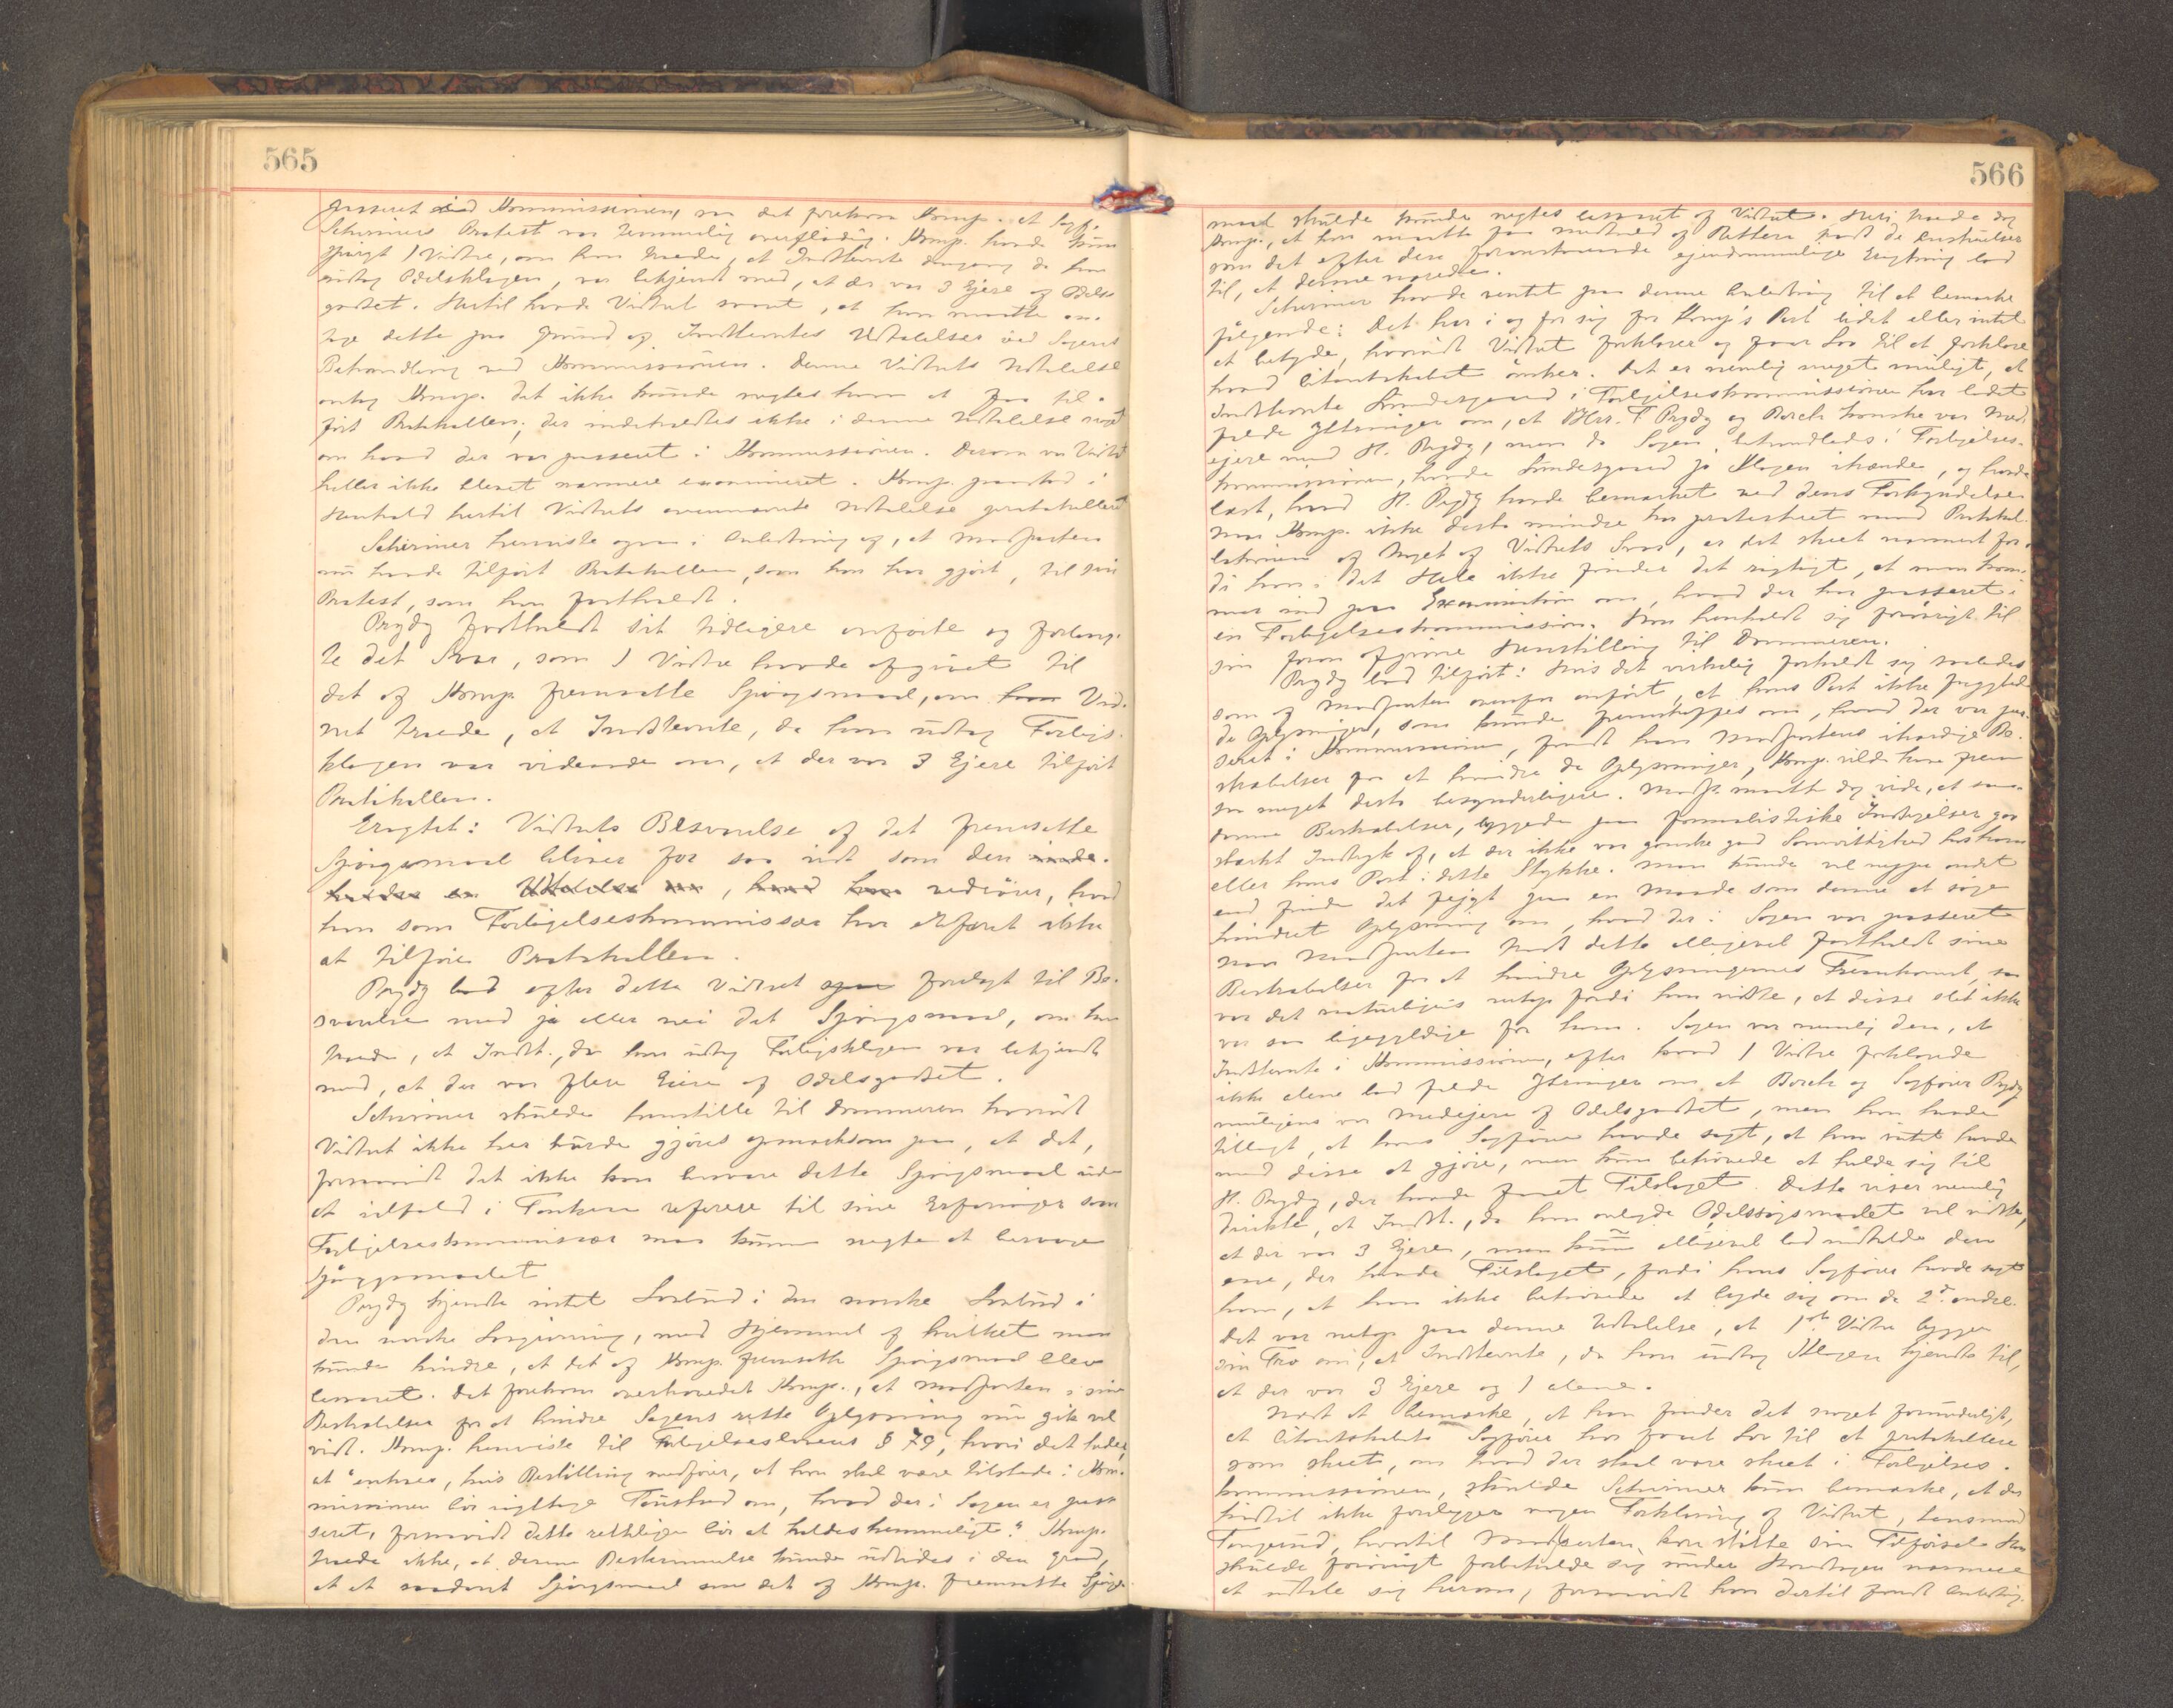 565
passeret ved Kommissionen, saa det forekom Komp. at Sagf.
Schirmers Protest var temmelig overflødig. Komp. havde kun
spurgt 1 Vidne, om han troede, at Indstevnte dengang da han
udtog Odelsklagen, var bekjendt med, at der var 3 Ejere af Odels
godset. Hertil havde Vidnet svaret, at han maatte an-
tage dette paa Grund af Indstevntes Udtalelser ved Sagens
Behandling ved Kommissionen. Denne Vidnets Udtalelse
antog Komp. det ikke kunde nægtes ham at faa til-
ført Protokollen; der indeholdtes ikke i denne Udtalelse noget
om hvad der var passeret i Kommissionen. Derom var Vidnet
heller ikke blevet nærmere examineret. Komp. paastod i
Henhold hertil Vidnets ovennævnte Udtalelse protokolleret
Schirmer henviste ogsaa i Anledning af, at Modparten
nu havde tilført Protokollen, som han har gjort, til sin
Protest, som han fastholdt.
Prydz fastholdt sit tidligere anførte og forlang-
te det Svar, som 1 Vidne havde afgivet til
det af Komp. fremsatte Spørgsmaal, om Vid-
net troede, at Indstevnte, da han udtog Forligs-
klagen var vidende om, at der var 3 Ejere tilført
Protokollen.
Eragtet: Vidnets Besvarelse af det fremsatte
Spørgsmaal bliver for saa vidt som den inde-
holder en Udtalelse om, hvad han vedrører, hvad
han som Forligelseskommissær har erfaret ikke
at tilføre Protokollen.
Prydz lod efter dette Vidnet forelagt til Be-
svarelse med ja eller nei det Spørgsmaal, om han
troede, at Indst., da han udtog Forligsklagen var bekjendt
med, at der var flere Eiere af Odelsgodset.
Schirmer skulde henstille til Dommeren hvorvidt
Vidnet ikke her burde gjøres opmærksom paa, at det,
forsaavidt det ikke kan besvare dette Spørgsmaal uden
at ialfald i Tanken referere til sine Erfaringer som
Forligelseskommissær maa kunne nægte at besvare
Spørgsmaalet
Prydz kjendte intet Lovbud i den norske Lovbud i
den norske Lovgivning, med Hjemmel af hvilket man
kunde hindre, at det af Komp. fremsatte Spørgsmaal blev
besvaret. Det forekom overhovedet Komp., at Modparten i sine
Bestræbelser for at hindre Sagens rette Oplysning nu gik vel
vidt. Komp. henviste til Forligelseslovens § 79, hvori det heder,
at "enhver, hvis Bestilling medfører, at han skal være tilstede i Kom-
missionen bør iagttage Taushed om, hvad der i Sagen er pas-
seret, forsaavidt dette retteligen bør at holdes hemmeligt." Komp.
troede ikke, at denne Bestemmelse kunde udtydes i den Grad,
at et saadant Spørgsmaal som det af Komp. fremsatte Spørgs-
566
maal skulde kunde nægtes besvaret af Vidnet. Heri troede dog
Komp., at han maatte faa Medhold af Retten trods de Anskuelser
som det efter den foranstaaende ejendommelige Eragtning lod
til, at denne nærede.
Schirmer havde ventet paa denne Anledning til at bemærke
følgende: Det har i og for sig for Komp's Part lidet eller intet
at betyde, hvorvidt Vidnet forklarer og faar Lov til at forklare
hvad Citantskabet ønsker. Det er nemlig meget muligt, at
Indstevnte Sundesgaard i Forligelseskommissionen har ladet
falde Ytringer om, at DHrr. F Prydz og Borch kanske var Med-
ejere med H. Prydz, men da Sagen behandledes i Forligelses-
kommissionen, havde Sundesgaard jo Klagen ihænde, og havde
læst, hvad H. Prydz havde bemærket ved dens Forkyndelse.
Naar Komp. ikke desto mindre har protesteret mod Protokol-
lationen af Noget af Vidnets Svar, er det skeet nærmest for-
di han i det Hele ikke finder det rigtigt, at man kom-
mer ind paa Examination om, hvad der har passeret i
en Forligelseskommission. Han henholdt sig forøvrigt til
sin foran afgivne Henstilling til Dommeren.
Prydz lod tilført: Hvis det virkelig forholdt sig saaledes
som af Modparten ovenfor anført, at hans Part ikke frygtede
de Oplysninger, som kunde fremskaffes om, hvad der var pas-
seret i Kommissionen, fandt han Modpartens ihærdige Be-
stræbelser for at hindre de Oplysninger, Komp. vilde have frem
saa meget desto besynderligere. Modp. maatte dog vide, at saa-
danne Bestræbelser, byggede paa formalistiske Indsigelser gav
stærkt Indtryk af, at der ikke var ganske god Samvittighed hos ham
eller hans Part i dette Stykke. Man kunde vel neppe andet
end finde det fejgt paa en Maade som denne at søge
hindret Oplysning om, hvad der i Sagen var passeret
Naar Modparten trods dette alligevel fastholdt sine
Bestræbelser for at hindre Oplysningernes Fremkomst, saa
var det naturligvis netop fordi han vidste, at disse slet ikke
var saa ligegyldige for ham. Sagen var nemlig den, at
Indstevnte i Kommissionen, efter hvad 1 Vidne forklarede
ikke alene lod falde Ytringer om at Borch og Sagfører Prydz
muligens var Medejere af Odelsgodset, men han havde
tillagt, at hans Sagfører havde sagt, at han intet havde
med disse at gjøre, men kun behøvede at holde sig til
H. Prydz, der havde faaet Tilslaget. Dette viser nemlig
direkte, at Indst., da han anlagde Odelssøgsmaalet vel vidste,
at der var 3 Ejere, men alligevel lod indkalde den
ene, der havde Tilslaget, fordi hans Sagfører havde sagt
ham, at han ikke behøvede at bryde sig om de 2de andre.
Det var netop paa denne Udtalelse, at 1ste Vidne bygger
sin Tro om, at Indstevnte, da han udtog Klagen kjendte til,
at der var 3 Ejere og 1 alene.
Næst at bemærke, at han finder det noget forunderligt,
at Citantskabets Sagfører har faaet Lov til at protokollere
som skeet, om hvad der skal være skeet i Forligelses-
kommissionen, skulde Schirmer kun bemærke, at der
hidtil ikke foreligger nogen Forklaring af Vidnet, Lensmand
Tangerud, hvortil Modparten kan støtte sin Tilførsel. Han
skulde forøvrigt forbeholde sig under nærmere
at udtale sig herom, forsaavidt han dertil fandt Anledning.